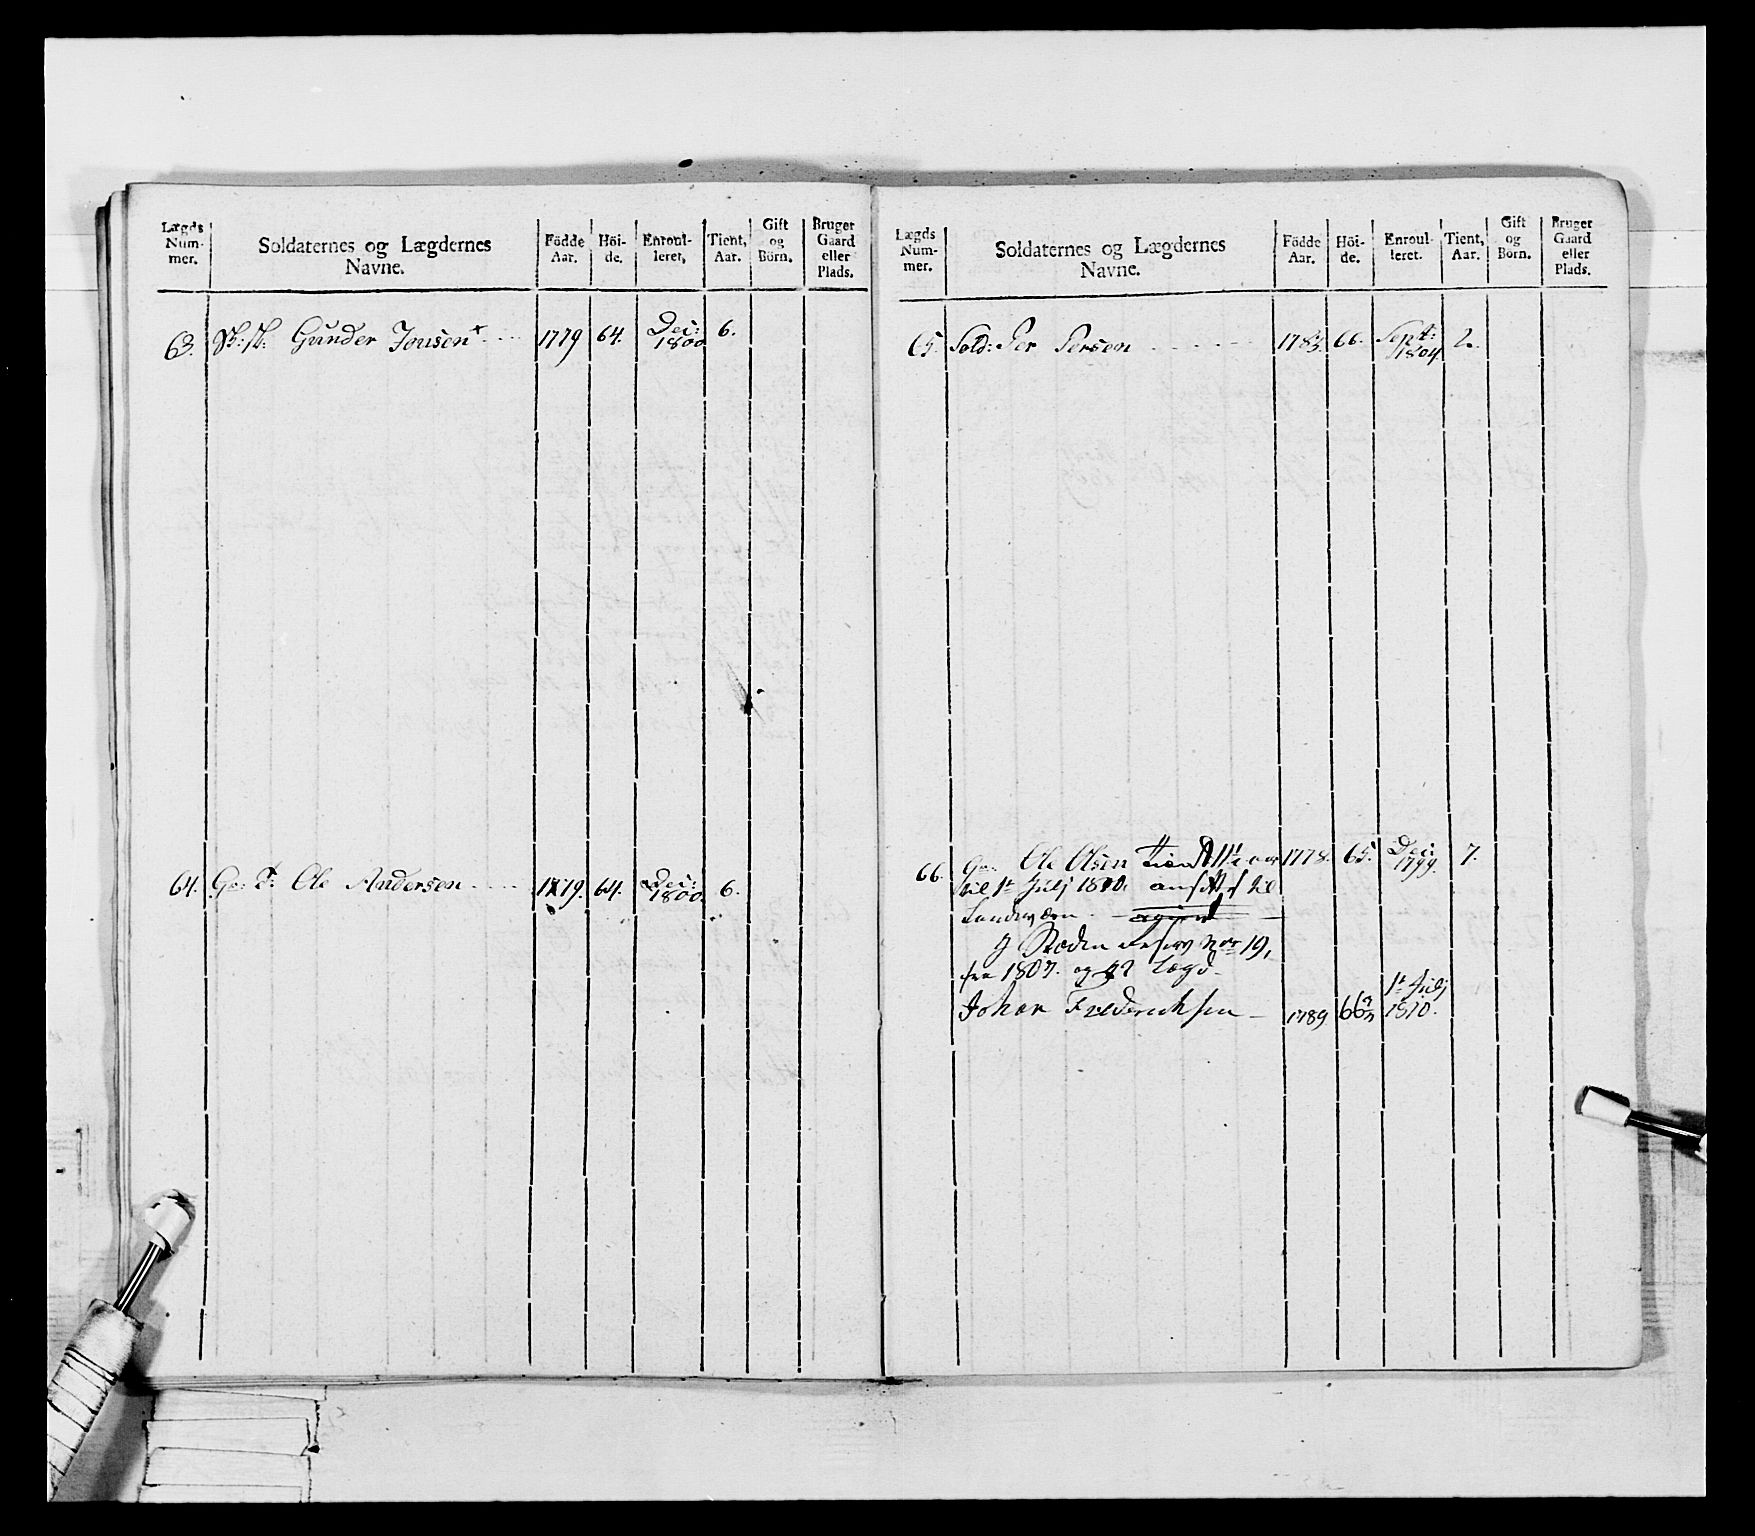 Lægds Num- mer.
Soldaternes og Lægdernes Navne.
Födde Aar.
Höi- de.
Enroul- leret,
Tient, Aar.
Gift og Börn.
Bruger Gaard eller Plads.
63. Gunder Jonsen 1779 64. Dec: 1800 6.
64. Ge: Ole Andersen 1779. 64. Dec: 1800. 6.
Lægds Num- mer.
Soldaternes og Lægdernes Navne.
Födde Aar.
Höi- de.
Enroul- leret.
Tient, Aar.
Gift og Börn.
Bruger Gaard eller Plads.
65. Sold: Per Persen 1783. 66. Sept: 1804. 2.
66. Ge: Ole Olsen tient 11½ aar 1778. 65. Dec: 1799. 7.
til 1t Julj 1810. ansatt til
Landværn
No 19,
fra 1807. og Lægd
Johan Frederichsen 1789 66 1t Julj 1810.